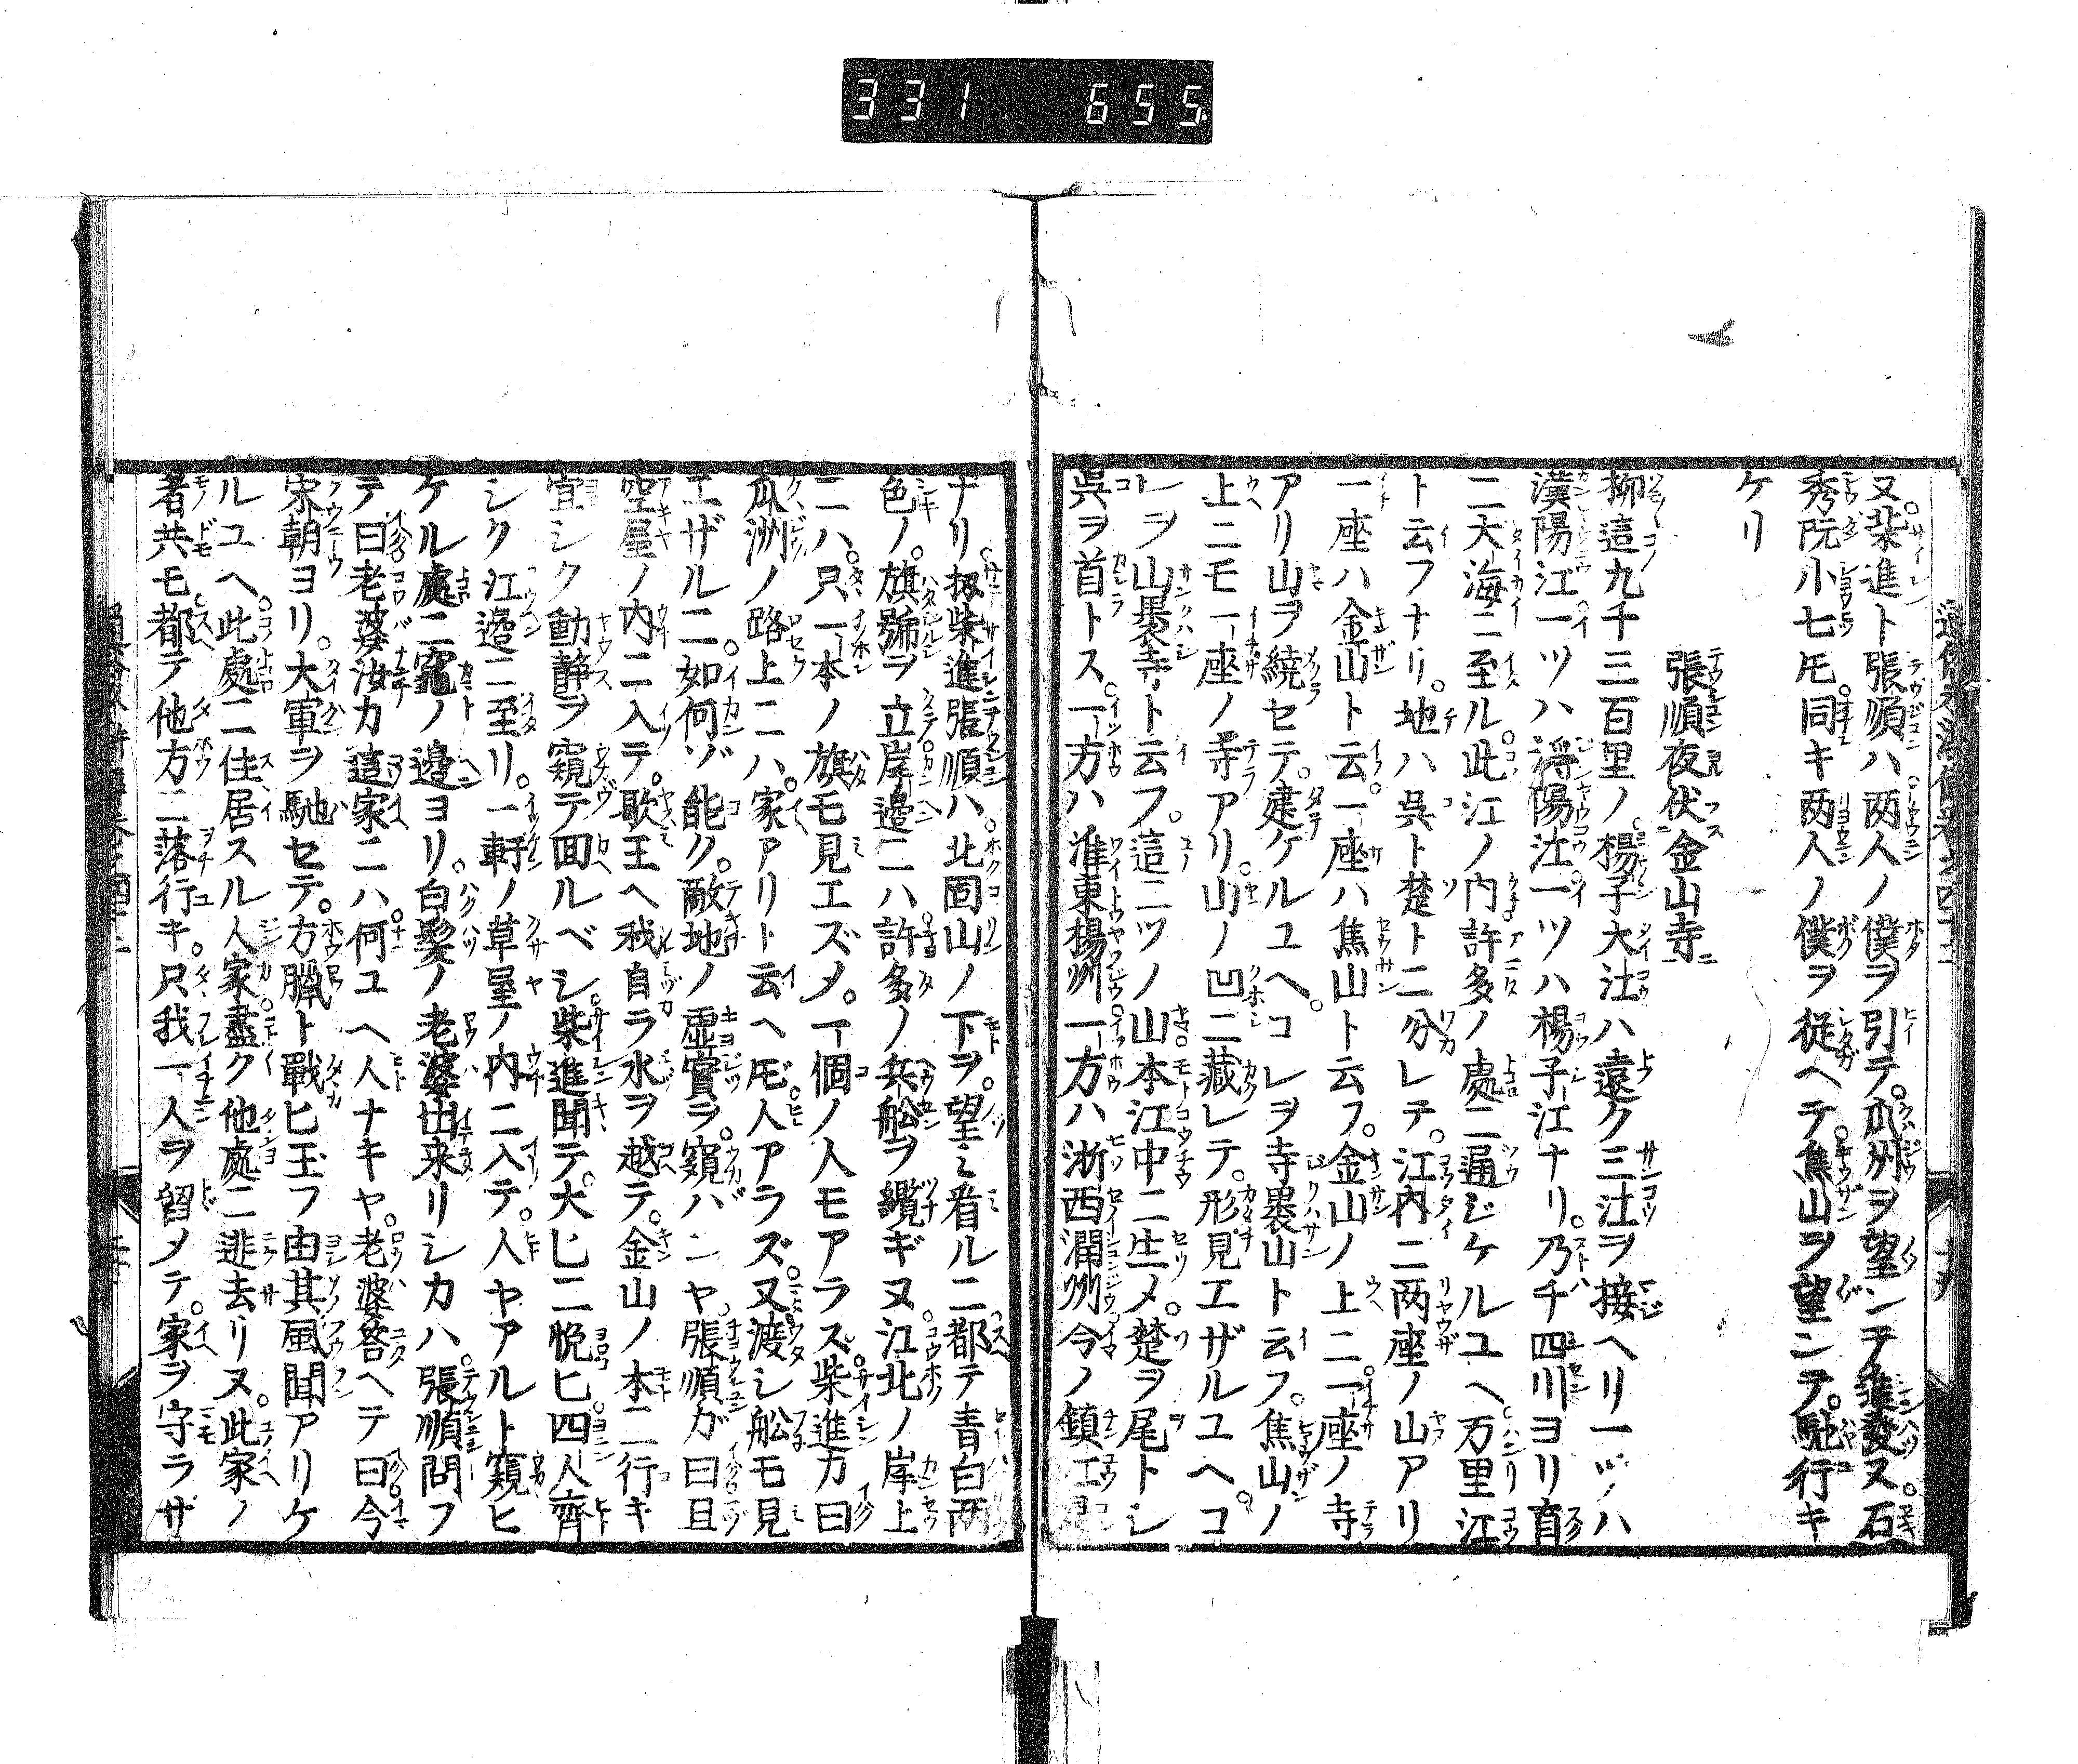 331 655
又柴進ト張順ハ两人ノ僕ヲ引テ瓜州ヲ望ンテ進發ス石
秀阮小七𪜈同キ两人ノ僕ヲ従ヘテ焦山ヲ望ンテ馳行キ
ケリ
張順夜伏金山寺
抑這九千三百里ノ楊子大江ハ遠ク三江ヲ接ヘリ一ツハ
漢陽江一ツハ潯陽江一ツハ楊子江ナリ乃チ四川ヨリ直
ニ大海ニ至ル此江ノ内許多ノ處ニ通ジケルユヘ万里江
ト云フナリ地ハ呉ト楚トニ分レテ江内ニ两座ノ山アリ
一座ハ金山ト云一座ハ焦山ト云フ金山ノ上ニ一座ノ寺
アリ山ヲ繞セテ建ケルユヘコレヲ寺裹山ト云フ焦山ノ
上ニモ一座ノ寺アリ山ノ凹ニ藏レテ形見エザルユヘコ
レヲ山裹寺ト云フ這二ツノ山本江中ニ生メ楚ヲ尾トシ
呉ヲ首トス一方ハ淮東楊州一方ハ浙西潤州今ノ鎮江
ナリ扨柴進張順ハ北固山ノ下ヲ望ミ看ルニ都テ青白两
色ノ旗號ヲ立岸邊ニハ許多ノ兵舩ヲ繫ギヌ江北ノ岸上
ニハ只一本ノ旗モ見エズメ一個ノ人モアラス柴進カ曰
瓜洲ノ路上ニハ家アリト云ヘ𪜈人アラズ又渡シ舩モ見
エザルニ如何ゾ能ク敵地ノ虚實ヲ窺ハンヤ張順ガ曰且
空屋ノ内ニ入テ歇王ヘ我自ラ水ヲ越テ金山ノ本ニ行キ
宜シク動静ヲ窺テ回ルベシ柴進聞テ大ヒニ悅ヒ四人齊
シク江邊ニ至リ一軒ノ草屋ノ内ニ入テ人ヤアルト窺ヒ
ケル處ニ竃ノ邊ヨリ白髪ノ老婆出来リシカハ張順問フ
テ曰老婆汝カ這家ニハ何ユヘ人ナキヤ老婆答ヘテ曰今
宋朝ヨリ大軍ヲ馳セテ方臘ト戰ヒ玉フ由其風聞アリケ
ルユヘ此處ニ住居スル人家盡ク他處ニ逃去リヌ此家ノ
者共モ都テ他方ニ落行キ只我一人ヲ留メテ家ヲ守ラサ